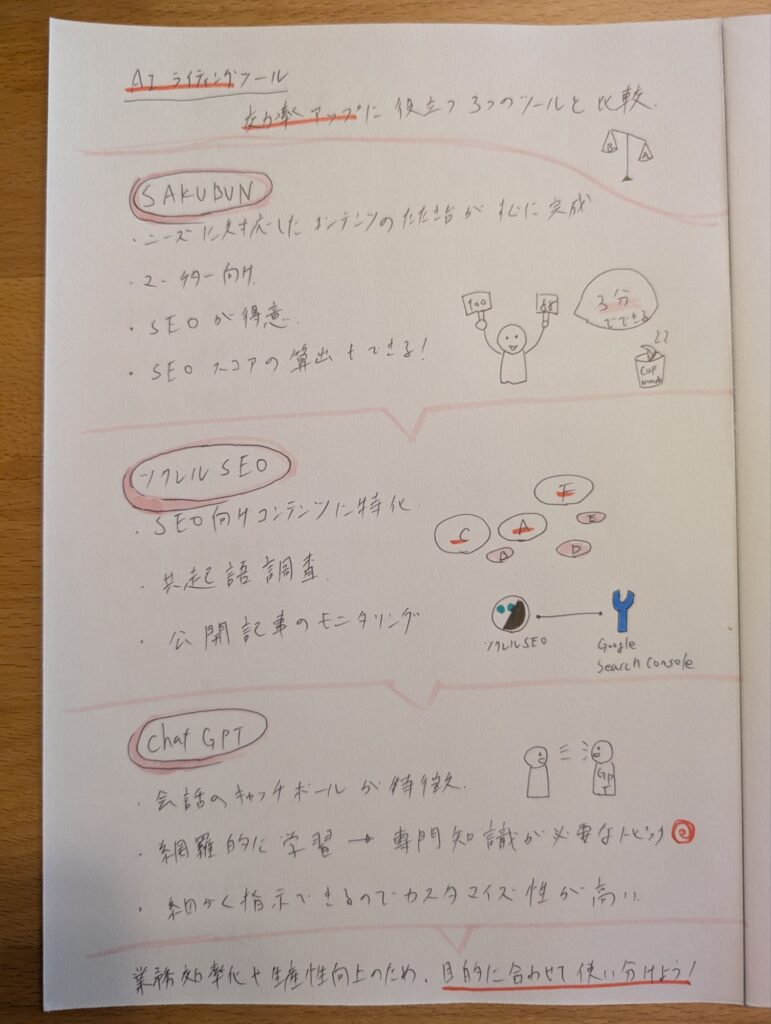 AI ライティングツール
効率アップに役立つ3つのツールを比較.
B A
SAKUBUN
・ニーズに対応したコンテンツのたたき台がすぐに完成
・マーケター向け
・SEOが得意.
・SEOスコアの算出もできる!
100
3分
でできる
Cup
ツクレルSEO
・SEO向けコンテンツに特化.
・共起語調査.
・公開記事のモニタリング
F
C A E
D
ツクレルSEO
Google
Search Console
Chat GPT
・会話のキャッチボールが特徴.
・網羅的に学習→専門知識が必要なトピック
・細かく指示できるのでカスタマイズ性が高い.
GP
T
業務効率化や生産性向上のため、目的に合わせて使い分けよう!